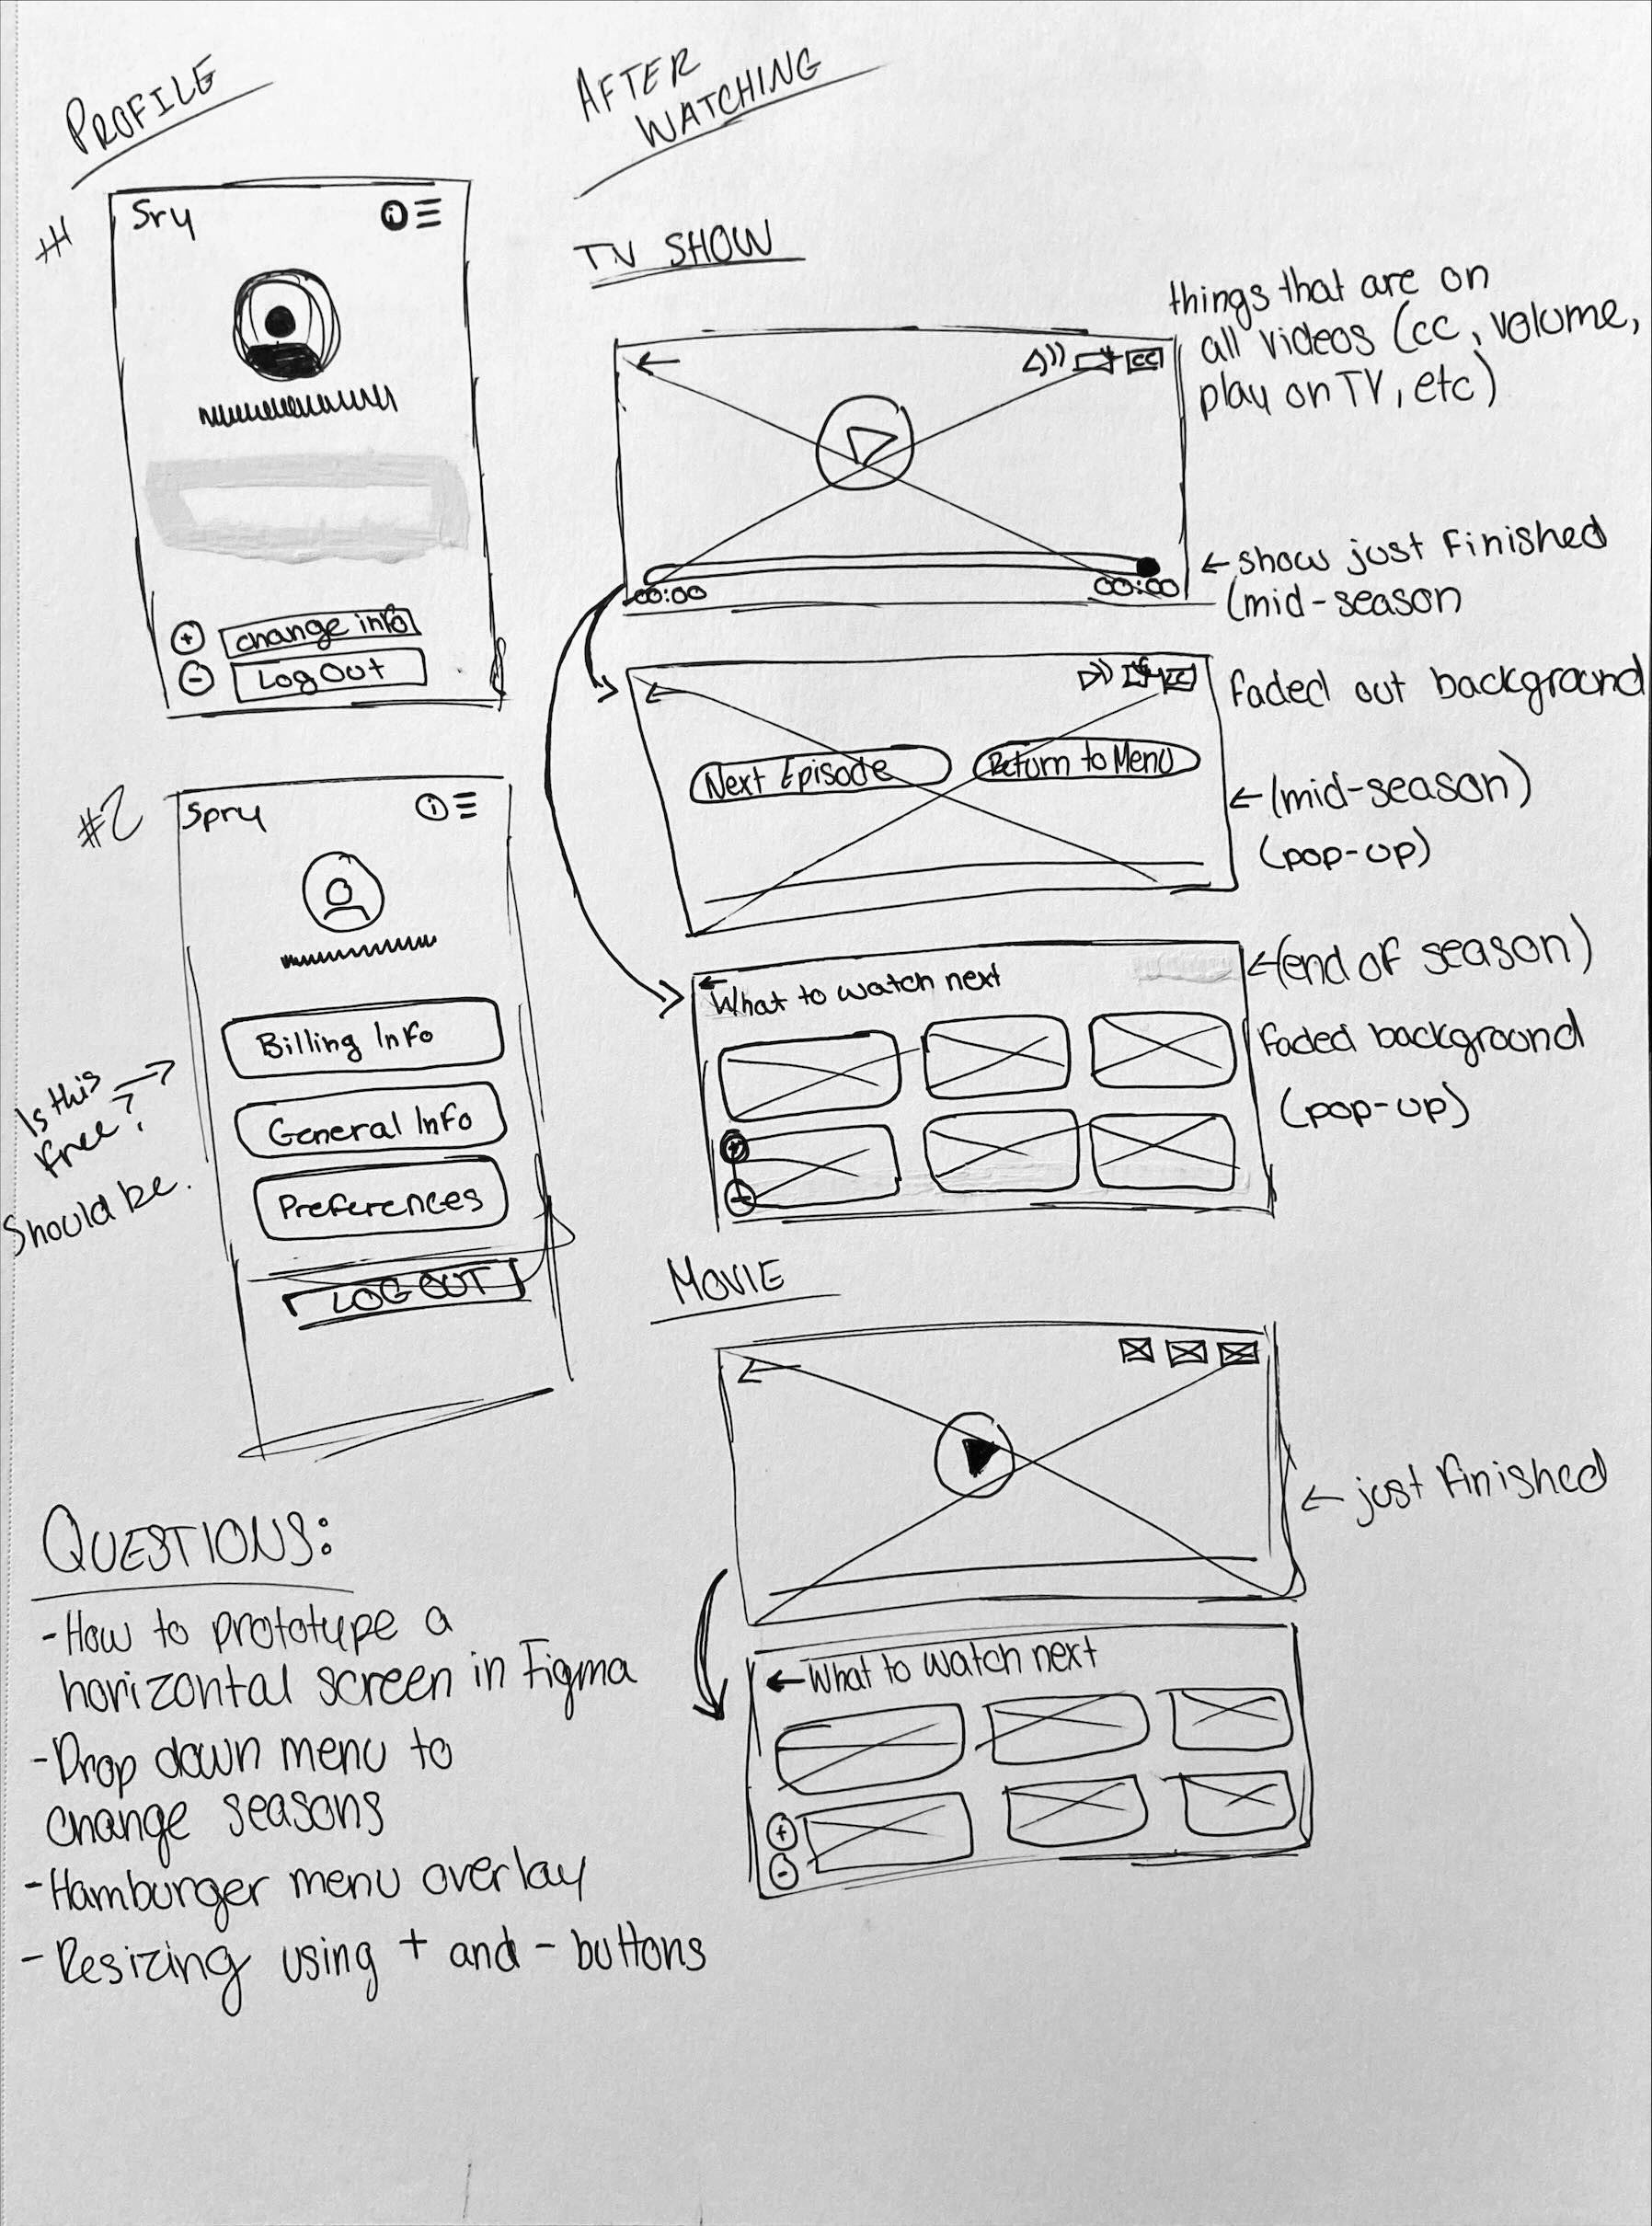 PROFILE
#1
Sry
i
change info
+
Log Out
-
#2
Spry
i
Billing Info
General Info
Preferences
LOG OUT
Is this
free?
Should be.
AFTER
WATCHING
TV SHOW
CC
00:00
00:00
things that are on
all videos (cc, volume,
play on TV, etc)
← show just finished
(mid-season
CC
Next Episode
Return to Menu
Faded out background
← (mid-season)
(pop-up)
← What to watch next
+
-
← (end of season)
Faded background
(pop-up)
MOVIE
← just finished
← What to watch next
+
-
QUESTIONS:
- How to prototype a
horizontal screen in Figma
- Drop down menu to
change seasons
- Hamburger menu overlay
- Resizing using + and - buttons